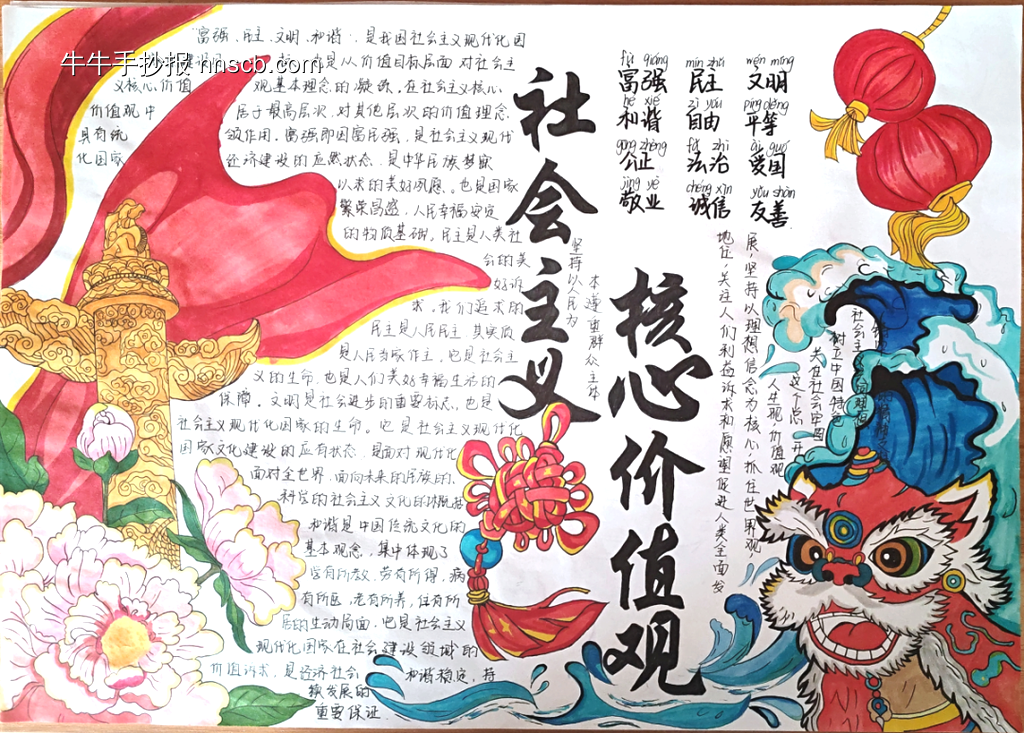 牛牛手抄报 nnscb.com
社会主义
核心价值观
fù qiáng mín zhǔ wén míng
富强 民主 文明
hé xié zì yóu píng děng
和谐 自由 平等
gōng zhèng fǎ zhì ài guó
公正 法治 爱国
jìng yè chéng xìn yǒu shàn
敬业 诚信 友善
"富强、民主、文明、和谐",是我国社会主义现代化国
是从价值目标层面对社会主
义核心价值 观基本理念的凝练,在社会主义核心
价值观中 居于最高层次,对其他层次的价值理念
具有统 领作用。富强即国富民强,是社会主义现代
化国家 经济建设的应然状态,是中华民族梦寐
以求的美好夙愿。也是国家
繁荣昌盛,人民幸福安定
的物质基础。民主是人类社
会的美
好诉
求。我们追求的
民主是人民民主,其实质
是人民当家作主。也是社会主
义的生命,也是人们美好幸福生活的
保障。文明是社会进步的重要标志,也是
社会主义现代化国家的生命。也是社会主义现代化
国家文化建设的应有状态,是面对现代化
面对全世界,面向未来的民族的,
科学的社会主义文化的
和谐是中国传统文化的
基本观念,集中体现了
学有所教,劳有所得,病
有所医,老有所养,住有所
居的生动局面,也是社会主义
现代化国家在社会建设领域的
价值诉求,是经济社会 和谐稳定,持
续发展的
重要保证.
坚持以人民为
本遵重群众主体
地位,关注人们利益诉求和愿望促进人类全面发
展,坚持以理想信念为核心,抓住世界观
人生观价值观
这个点
树立中国特色